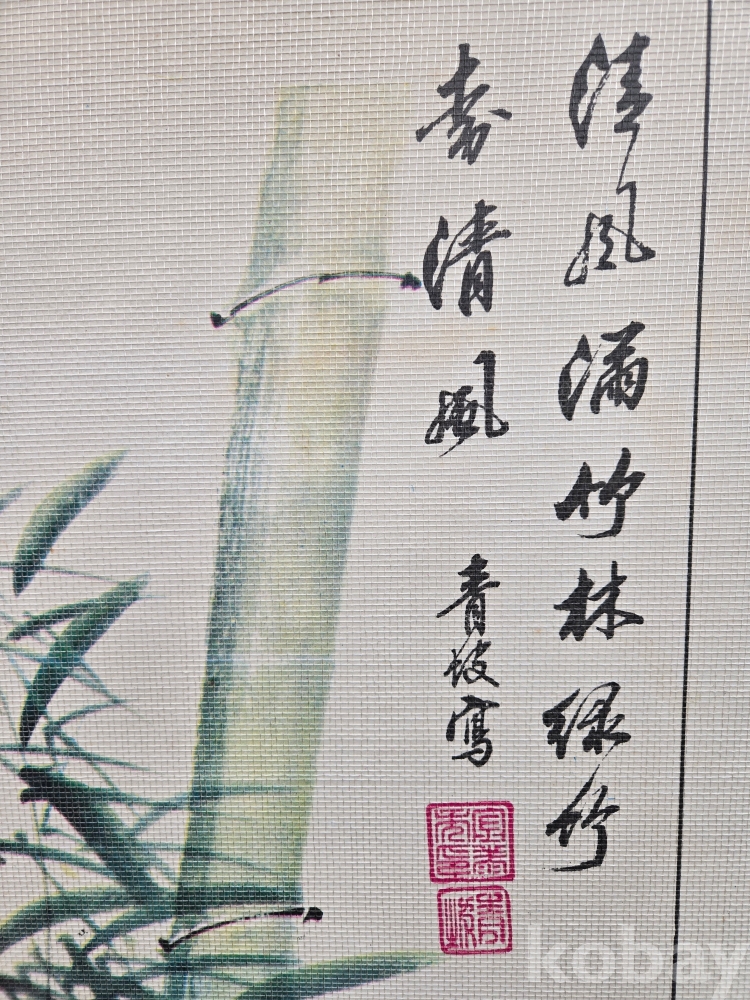 清風滿竹林綠竹
清風
青坡寫
青坡
kobay